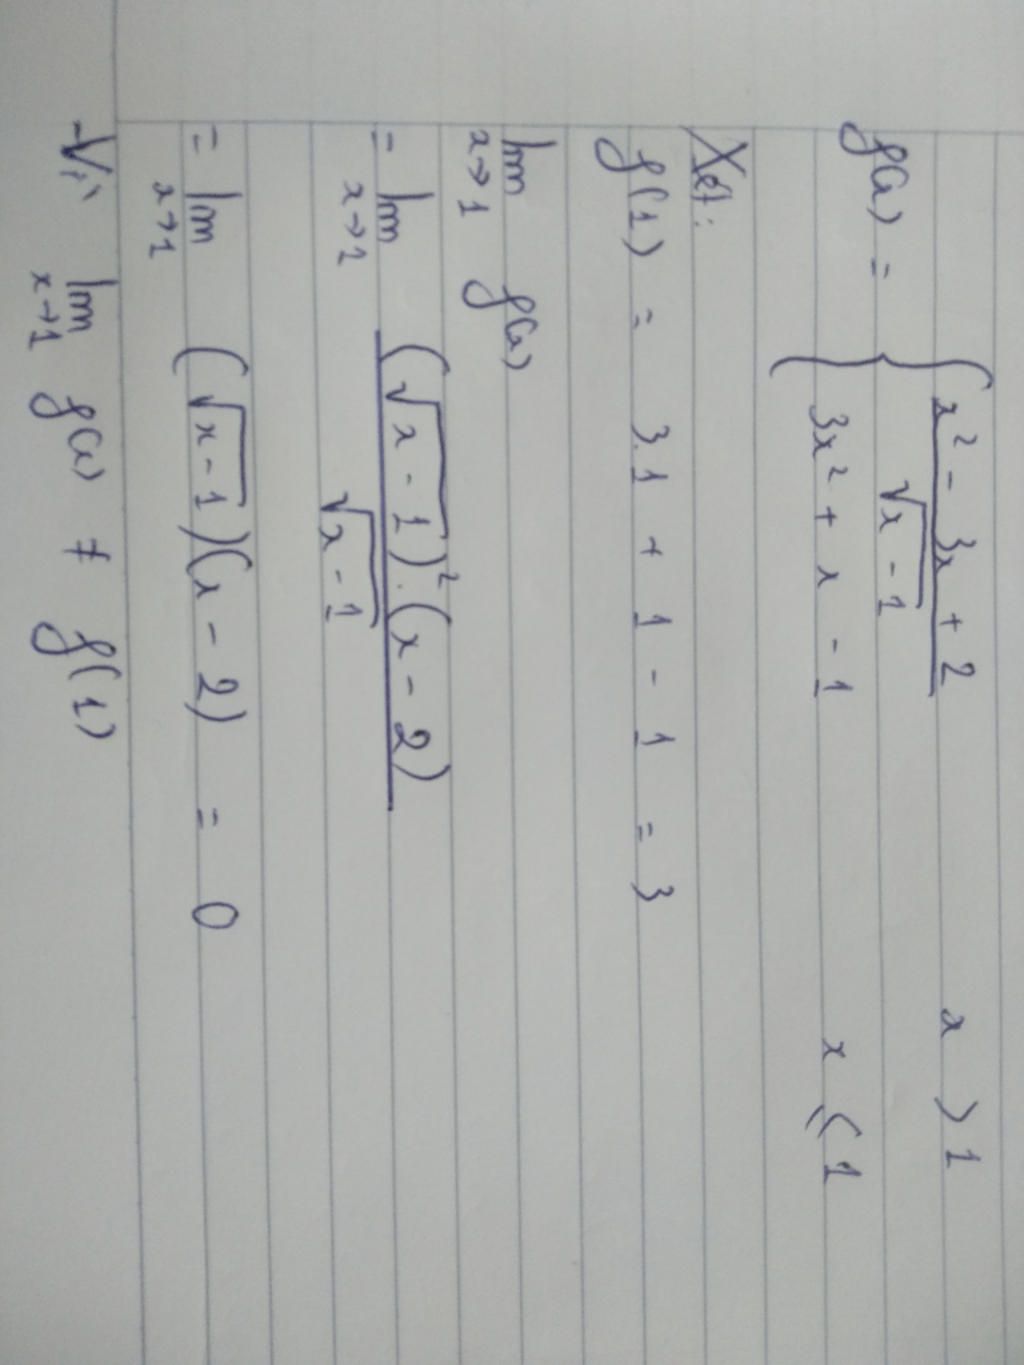 f(x) = { x² - 3x + 2 / √x - 1    x > 1
3x² + x - 1    x ≤ 1
Xét:
f(1) = 3.1 + 1 - 1 = 3
lim x→1 f(x)
= lim x→1 (√x - 1)².(x - 2) / √x - 1
= lim x→1 (√x - 1)(x - 2) = 0
Vì lim x→1 f(x) ≠ f(1)